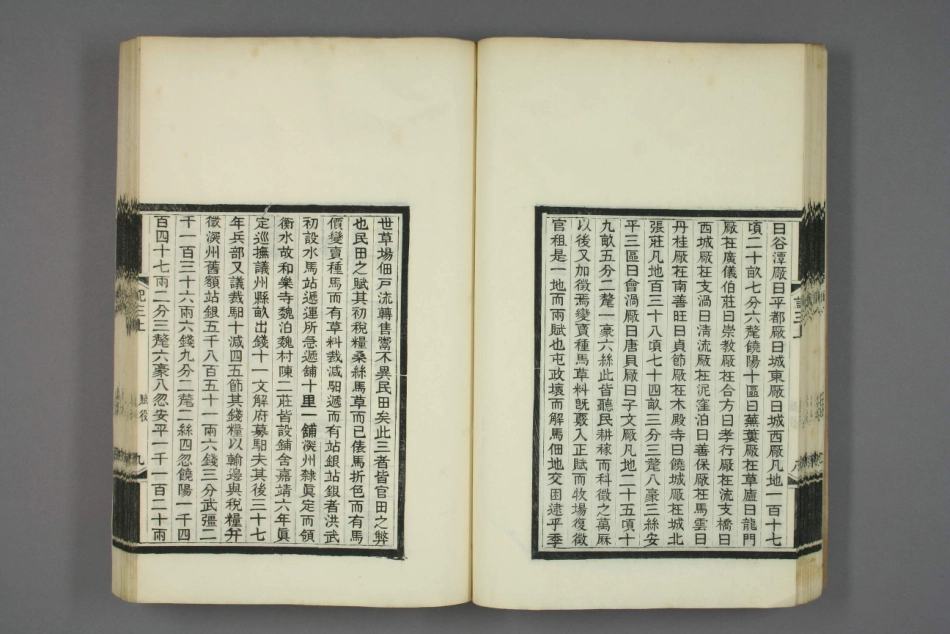 曰谷潭厰曰平都厰曰城東厰曰城西厰凡地一百十七
頃二十畝七分六氂饒陽十區曰蕪蔞厰在草廬曰龍門
厰在廣儀伯莊曰崇教厰在合方曰孝行厰在流支橋曰
西城厰在支渦曰清流厰在泥窪泊曰善保厰在馬雲曰
丹桂厰在南善旺曰貞節厰在木殿寺曰饒城厰在城北
張莊凡地百三十八頃七十四畝三分三氂八豪三絲安
平三區曰會渦厰曰唐貝厰曰子文厰凡地二十五頃十
九畝五分二氂一豪六絲此皆聽民耕稼而科徵之萬厤
以後又加徵焉變賣種馬草料旣竝入正賦而牧場復徵
官租是一地而兩賦也屯政壞而解馬佃地交困逮乎季
世草場佃戸流轉售鬻不異民田矣此三者皆官田之獘
也民田之賦其初稅糧桑絲馬草而已俵馬折色而有馬
價變賣種馬而有草料裁減馹遞而有站銀站銀者洪武
初設水馬站遞運所急遞舖十里一舖深州隸眞定而領
衡水故和樂寺魏泊魏村陳二莊皆設舖舍嘉靖六年眞
定巡撫議州縣畝出錢十一文解府募馹夫其後三十七
年兵部又議裁馹十減四五節其錢糧以輸邊與稅糧并
徵深州舊額站銀五千八百五十一兩六錢三分武彊二
千一百三十六兩六錢九分二氂二絲四忽饒陽一千四
百四十七兩二分三氂六豪八忽安平一千一百二十兩
記三上
賦役
九